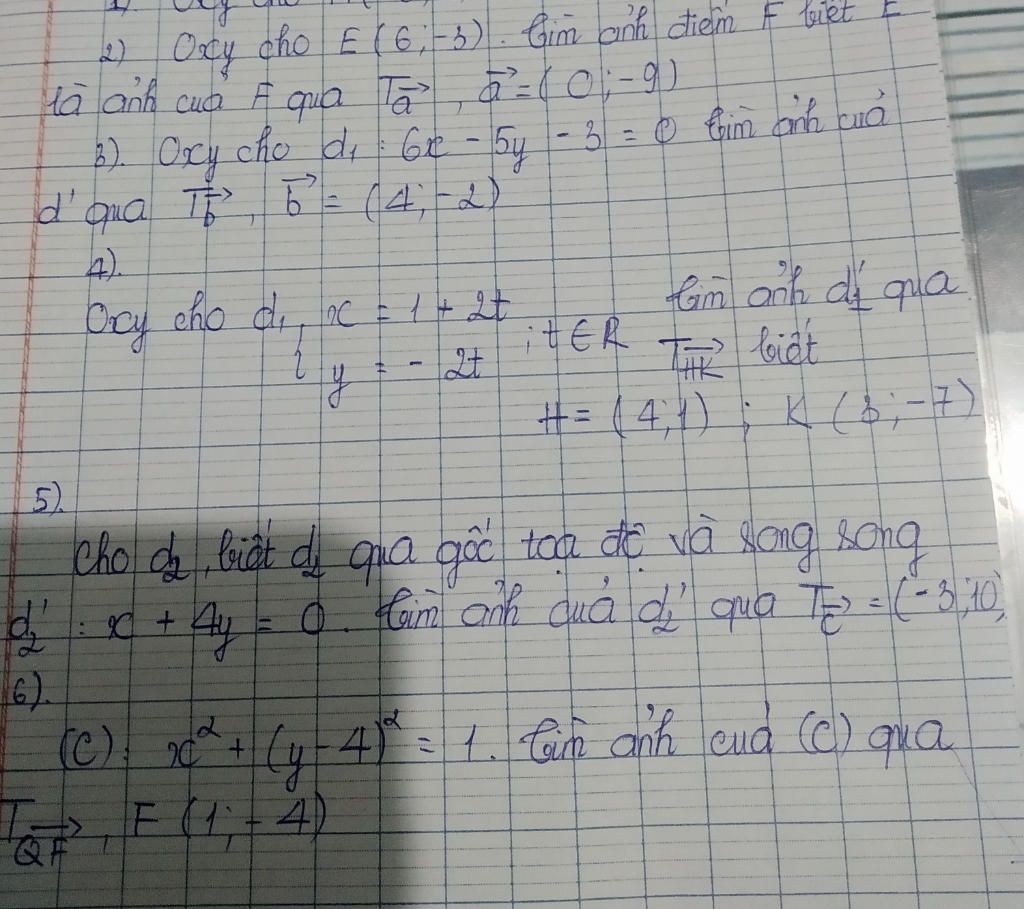 1) Oxy cho
2) Oxy cho E (6; -3). Tìm ảnh điểm F biết E
là ảnh của F qua Ta→, a→ = (0; -9)
3). Oxy cho d₁ : 6x - 5y - 3 = 0 tìm ảnh của
d' qua Tb→, b→ = (4; -2)
4).
Oxy cho d₁, { x = 1 + 2t tìm ảnh d₁' qua
y = - 2t ; t ∈ R THK→ biết
H = (4; 1) ; K (3; -7)
5).
Cho d₂, biết d₂ qua gốc toạ độ và song song
d₂' : x + 4y = 0. tìm ảnh của d₂' qua Tc→ = (-3; 10)
6).
(C) : x² + (y - 4)² = 1. Tìm ảnh của (C) qua
TQF→, F (1; -4)